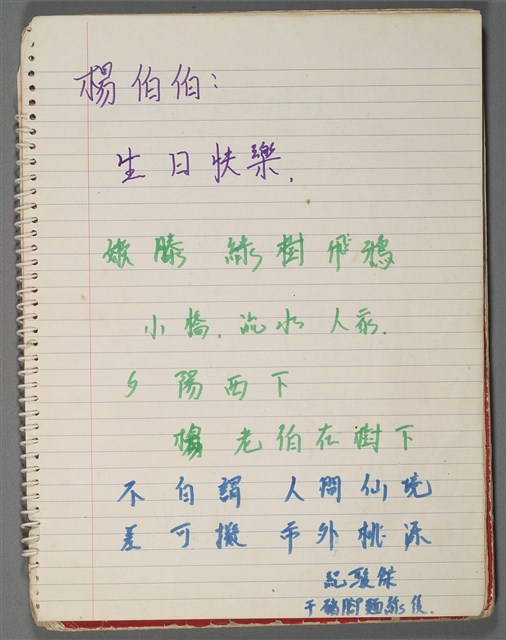 楊伯伯:
生日快樂.
嫩藤 綠樹飛鴉
小橋.流水 人家.
夕陽西下
楊老伯在樹下
不自謂 人間仙境
差可擬 市外桃源
紀駿傑
于豬腳麵線後.